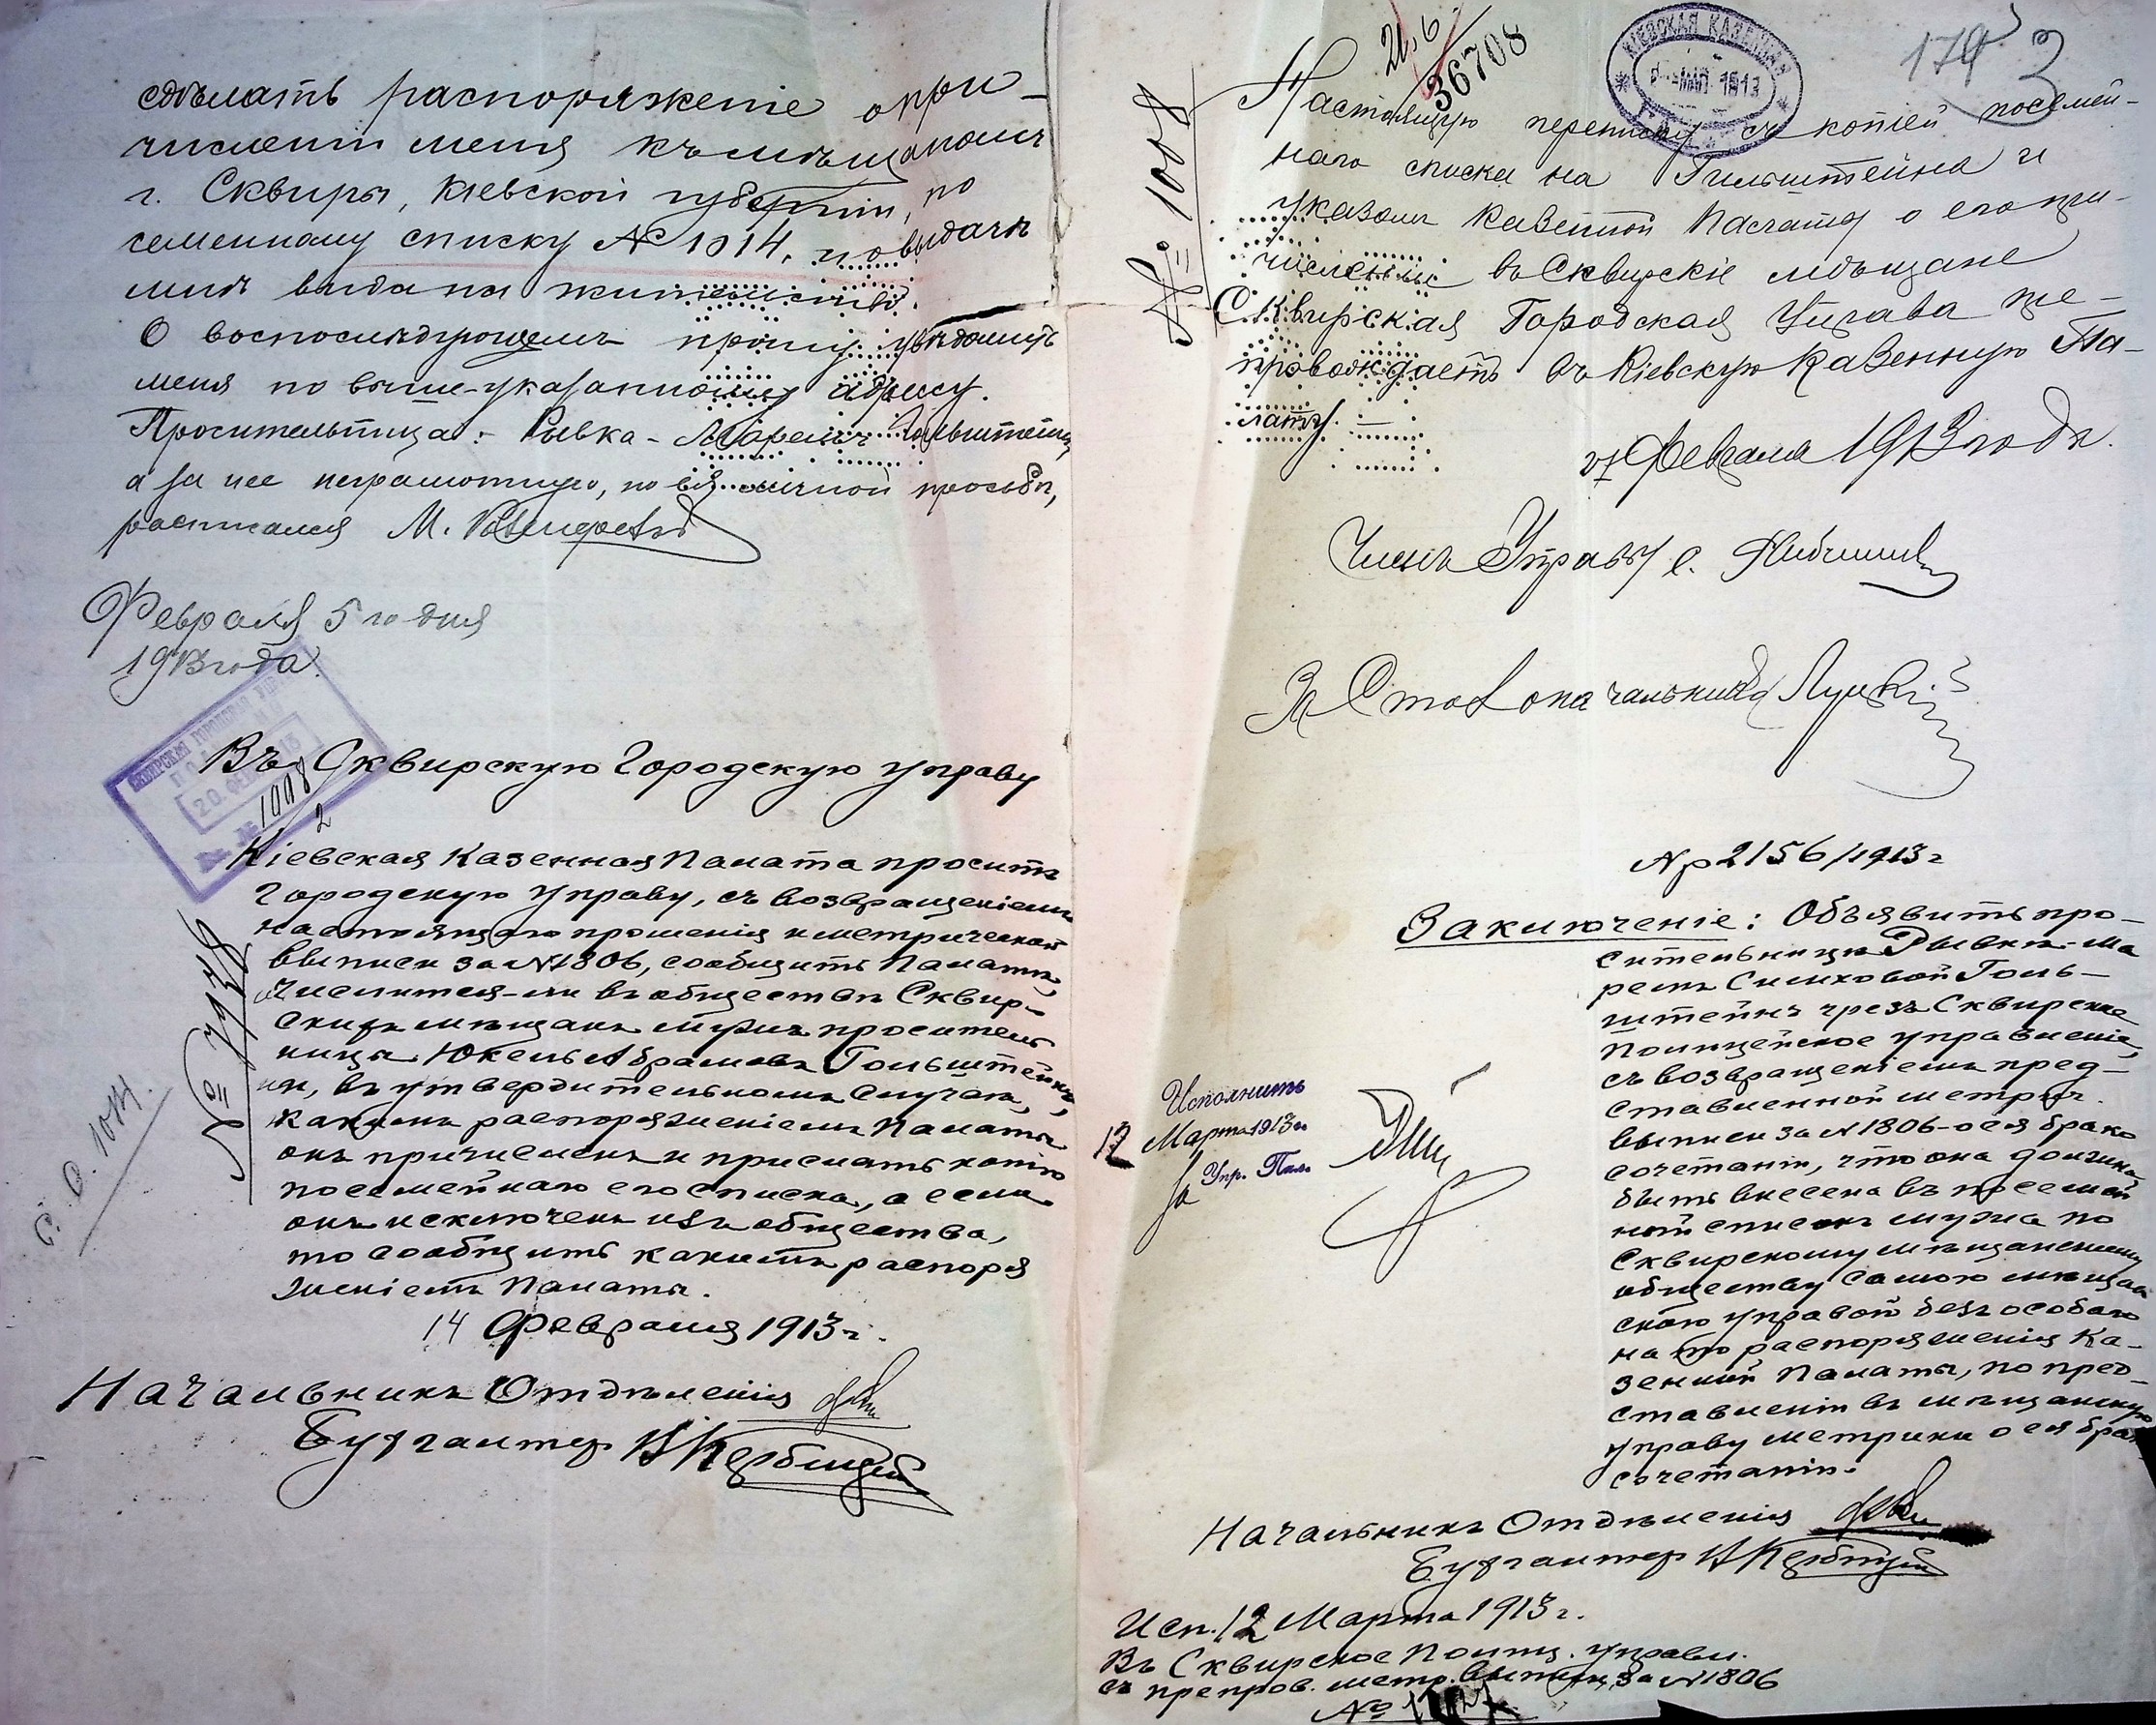 сдѣлать распоряженіе о при-
численіи меня къ мѣщанамъ
г. Сквиры, Кіевской губерніи, по
семейному списку № 1014, по выдачѣ
мнѣ вида на жительство.
О воспослѣдующемъ прошу увѣдомить
меня по выше-указанному адресу.
Просительница:- Рывка-Маремъ Гольштейнъ,
а за нее неграмотную, по ея личной просьбѣ,
расписался М.
Февраля 5 го дня
1913 года.
СКВИРСКАЯ ГОРОДСКАЯ
20 ФЕВ 1913
№ 1008
2
Въ Сквирскую Городскую Управу
Кіевская Казенная Палата проситъ
Городскую Управу, съ возвращеніемъ
настоящаго прошенія и метрической
выписи за № 1806, сообщить Палатѣ,
числится-ли въ обществѣ Сквир-
скихъ мѣщанъ мужъ проситель
ницы Юкель Абрамовъ Гольштейнъ,
и, въ утвердительномъ случаѣ,
какимъ распоряженіемъ Палаты
онъ причисленъ и прислать копію
посемейнаго его списка, а если
онъ исключенъ изъ общества,
то сообщить какимъ распоря
женіемъ Палаты.
14 Февраля 1913 г.
Начальникъ Отдѣленія
Бухгалтеръ
С. О. 1014.
36708
КІЕВСКАЯ КАЗЕННАЯ
1913
174
3
№ 1008
Настоящую переписку съ копіей посемей-
наго списка на Гильштейна и
указомъ Казенной Палаты о его при-
численіи въ Сквирскіе мѣщане
Сквирская Городская Управа пре-
провождаетъ въ Кіевскую Казенную Па-
лату. —
Февраля 1913 года.
Членъ Управы
За Столоначальника
№ 2156/1913 г
Заключеніе: Объявить про-
сительницѣ Рывкѣ-Ма
ремъ Симховой Голь-
штейнъ чрезъ Сквирское
Полицейское управленіе,
съ возвращеніемъ пред-
ставленной метрич.
выписи за № 1806-о ея брако
сочетаніи, что она должна
быть внесена въ посемей
ный списокъ мужа по
Сквирскому мѣщанскому
обществу самою мѣщан
скою управой безъ особаго
на то распоряженія Ка-
зенной Палаты, по пред-
ставленіи въ мѣщанскую
управу метрики о ея брако
сочетаніи.
Исполнить
12 Марта 1913 г.
За Упр. Пал.
Начальникъ Отдѣленія
Бухгалтеръ
Исп. 12 Марта 1913 г.
Въ Сквирское Полиц. управл.
съ препров. метр. выписи за № 1806